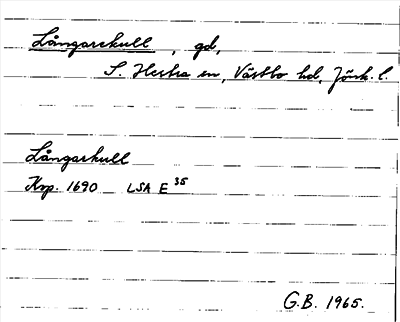 Långarekull, gd,
S. Hestra sn, Västbo hd, Jönk. l.
Långarkull
Krp. 1690 LSA E 35
G.B. 1965.